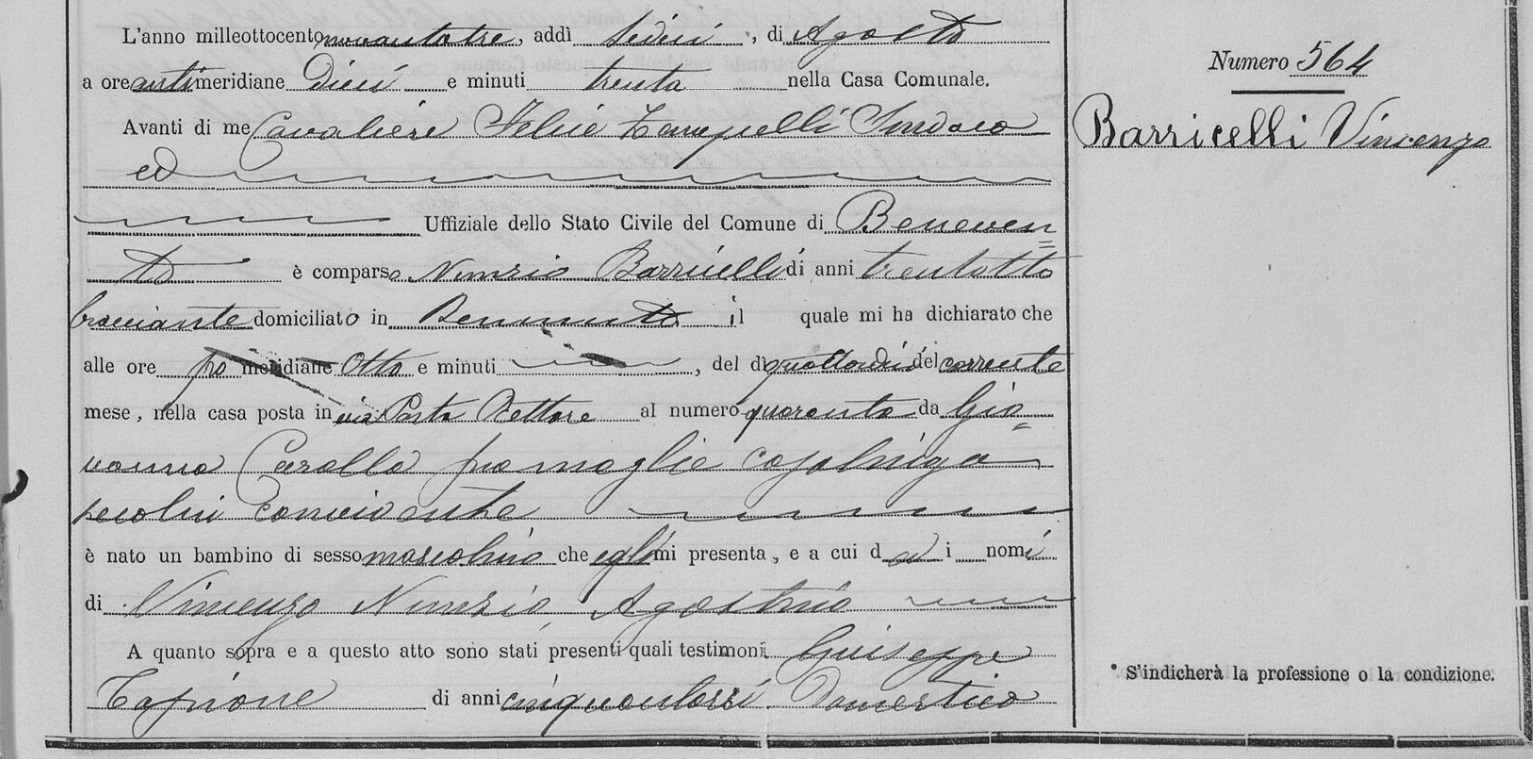 L'anno milleottocento novantatre, addì sedici, di Agosto
a ore antimeridiane dieci e minuti trenta nella Casa Comunale.
Avanti di me Cavaliere Felice Sindaco
ed
Uffiziale dello Stato Civile del Comune di Beneven=
to è comparso Nunzio Barricelli di anni trentotto
bracciante domiciliato in Benevento il quale mi ha dichiarato che
alle ore po meridiane Otto e minuti , del dì quattordici del corrente
mese, nella casa posta in via Porta Rettore al numero quaranta da Gio=
vanna Carolla sua moglie casalinga
secolui convivente
è nato un bambino di sesso mascolino che egli mi presenta, e a cui dà i nomi
di Vincenzo Nunzio, Agostino
A quanto sopra e a questo atto sono stati presenti quali testimoni Giuseppe
di anni cinquantasei Domestico
Numero 564
Barricelli Vincenzo
* S'indicherà la professione o la condizione.